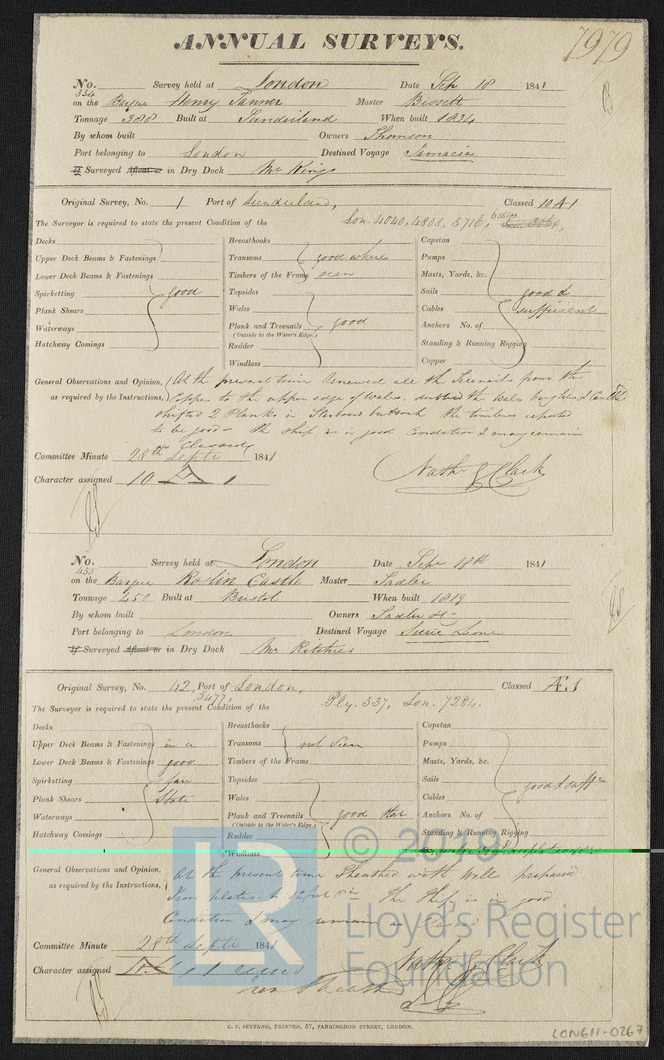 ANNUAL SURVEYS.
7979
No. 334 Survey held at London Date Sep 18 1841
on the Barque Henry Tanner Master Bissett
Tonnage 388 Built at Sunderland When built 1834
By whom built Owners Thomson
Port belonging to London Destined Voyage Jamacia
If Surveyed Afloat or in Dry Dock Mr Kings
Original Survey, No. 1 Port of Sunderland, Classed 10 A 1
The Surveyor is required to state the present Condition of the Lon. 4040, 4808, 5716,
Decks
Upper Deck Beams & Fastenings
Lower Deck Beams & Fastenings
Spirketting good
Plank Shears
Waterways
Hatchway Comings
Breasthooks
Transoms good where
Timbers of the Frame seen
Topsides
Wales
Plank and Treenails good
(Outside to the Water's Edge)
Rudder
Windlass
Capstan
Pumps
Masts, Yards, &c.
Sails good &
Cables sufficient
Anchors No. of
Standing & Running Rigging
Copper
General Observations and Opinion, At the present time Renewed all the Treenails from the
as required by the Instructions, Copper to the upper edge of Wales,
shifted 2 Planks in Starboard buttock the timbers reported
to be good - the ship is in good Condition & may remain
as Classed
Committee Minute 28th Septr 1841
Character assigned 10 A 1
Nathl Clark
No. 455 Survey held at London Date Sepr 18th 1841
on the Barque Roslin Castle Master Sadler
Tonnage 450 Built at Bristol When built 1819
By whom built Owners Sadler
Port belonging to London Destined Voyage Sierra Leone
If Surveyed Afloat or in Dry Dock Mr Ritchies
Original Survey, No. 42, Port of London, Classed Æ 1
5477,
The Surveyor is required to state the present Condition of the Ply. 537, Lon. 7284.
Decks
Upper Deck Beams & Fastenings in a
Lower Deck Beams & Fastenings good
Spirketting
Plank Shears State
Waterways
Hatchway Comings
Breasthooks
Transoms not seen
Timbers of the Frame
Topsides
Wales
Plank and Treenails good
(Outside to the Water's Edge)
Rudder
Windlass
Capstan
Pumps
Masts, Yards, &c.
Sails good & suff
Cables
Anchors No. of
Standing & Running Rigging
General Observations and Opinion, At the present time Sheathed with
as required by the Instructions, The Ship is in good
Condition & may remain
Committee Minute 28th Septr 1841
Character assigned
Nathl Clark
© 2019
LR
Lloyd's Register
Foundation
C. F. SEYFANG, PRINTER, 57, FARRINGDON STREET, LONDON.
LON611-0267